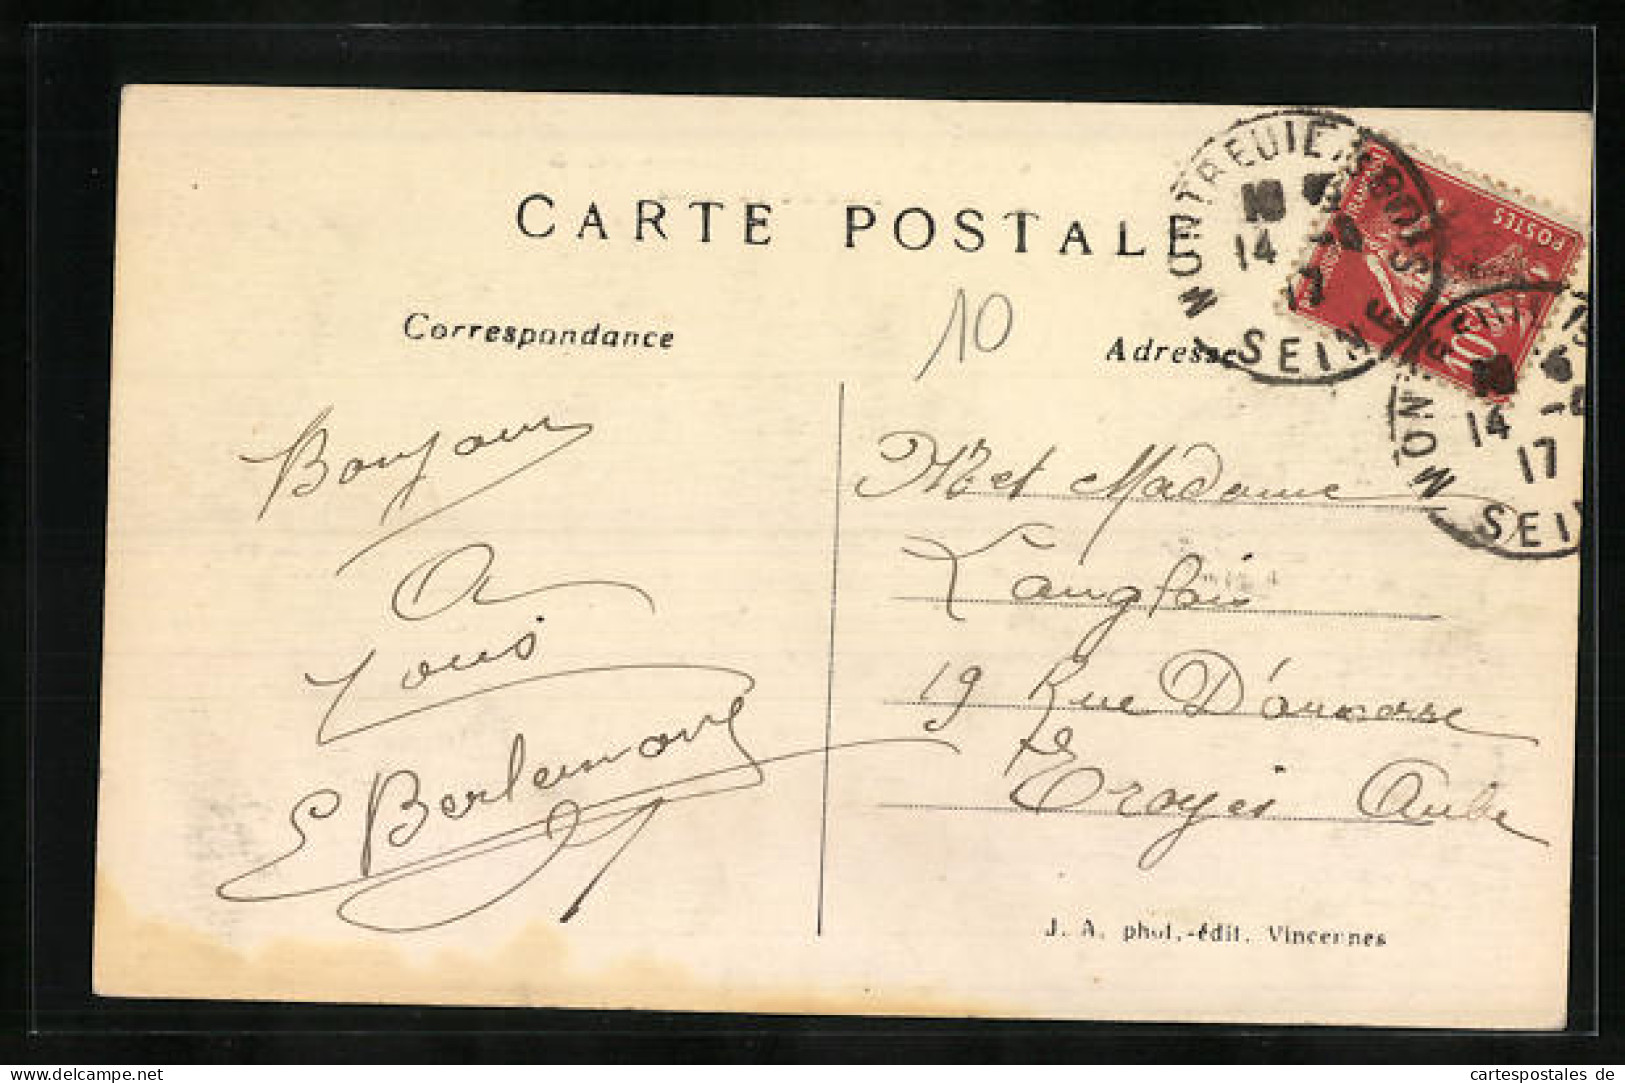 CARTE POSTALE
Correspondance
10
Adresse
MONTREUIL-S-BOIS
14
17
SEINE
POSTES
10
MON
14
17
SEIN
Bonjour
a
Tous
E Berlemont
Mr et Madame
Langlois
19 Rue
Troyes Aube
J. A. phot.-édit. Vincennes
https://www.cartespostales.de
cartespostales de